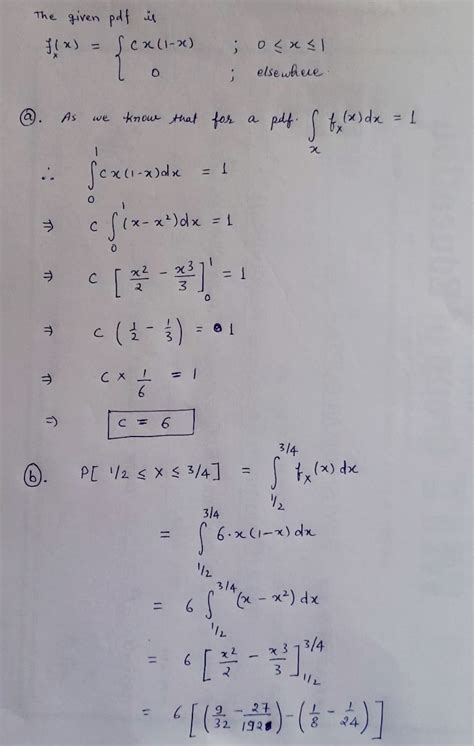 The given pdf is
fₓ(x) = { Cx(1-x) ; 0 ≤ x ≤ 1
0 ; elsewhere.
(a). As we know that for a pdf. ∫ₓ fₓ(x) dx = 1
∴ ∫₀¹ Cx(1-x) dx = 1
⇒ C ∫₀¹ (x - x²) dx = 1
⇒ C [x²/2 - x³/3]₀¹ = 1
⇒ C (1/2 - 1/3) = 1
⇒ C × 1/6 = 1
⇒ C = 6
(b). P[1/2 ≤ X ≤ 3/4] = ∫_{1/2}^{3/4} fₓ(x) dx
= ∫_{1/2}^{3/4} 6·x(1-x) dx
= 6 ∫_{1/2}^{3/4} (x - x²) dx
= 6 [x²/2 - x³/3]_{1/2}^{3/4}
= 6 [(9/32 - 27/192) - (1/8 - 1/24)]